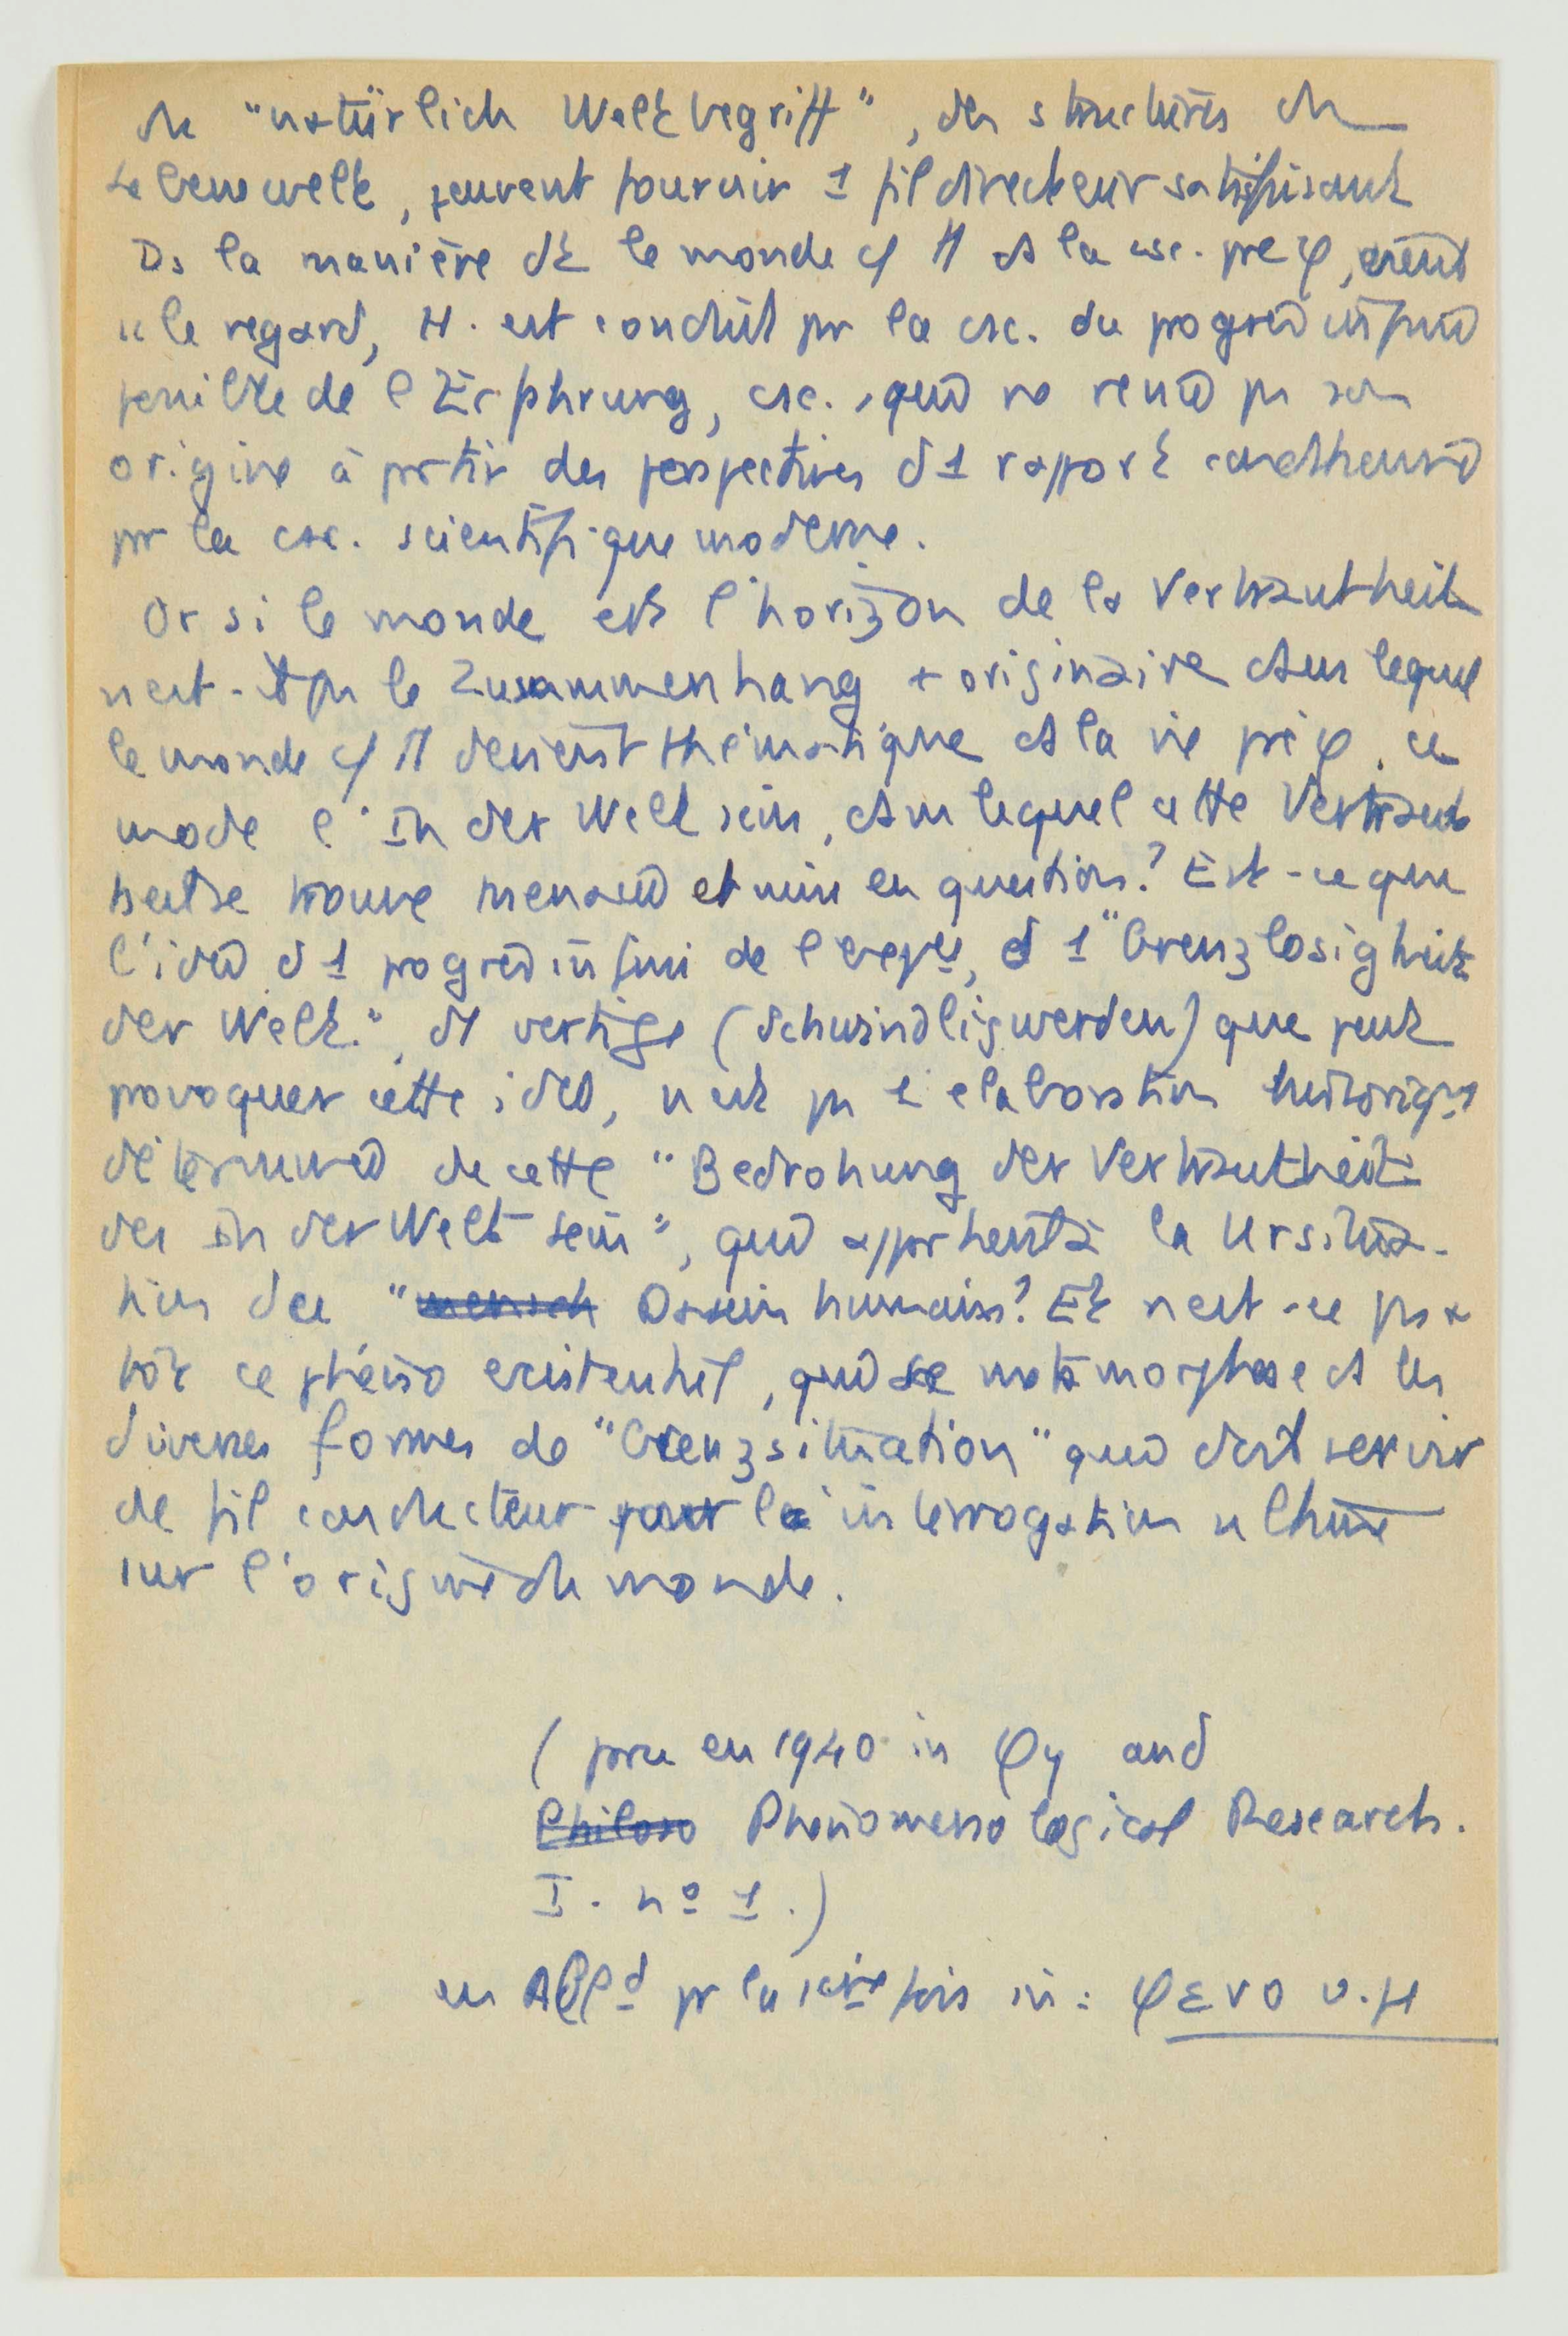 du "natürlich Weltbegriff", des structures du
Lebenswelt, peuvent fournir 1 fil directeur satisfaisant
Ds la manière dt le monde ds la csc. pre φ, vient
le regard, H. est conduit pr la csc. du
de l'Erfahrung, csc. qui ne rend ps son
origine à partir des perspectives d 1 rapport
pr la csc. scientifique moderne.
Or si le monde est l'horizon de la Vertrautheit
n'est-il ps le Zusammenhang + originaire ds lequel
le monde devient thématique ds la vie pré φ, ce
mode l'In der Welt sein, ds lequel cette Vertraut
heit se trouve menacée et mise en question? Est-ce que
l'idée d 1 progrès infini de l'expce, d 1 "Grenzlosigkeit
der Welt.", du vertige (Schwindligwerden) que peut
provoquer cette idée, n'est ps 1 élaboration historique
déterminée de cette "Bedrohung der Vertrautheit
des In der Welt sein", qui appartient à la Ursitua-
tion du "mensch Dasein humain? Et n'est-ce ps +
tôt ce phéno existentiel, qui se métamorphose ds les
diverses formes de "Grenzsituation" qui doit servir
de fil conducteur pour la interrogation ultime
sur l'origine du monde.
( paru en 1940 in φy and
Philoso Phenomenological Research.
I. nº 1.)
en Alld pr la 1ère fois in: φενο u. H